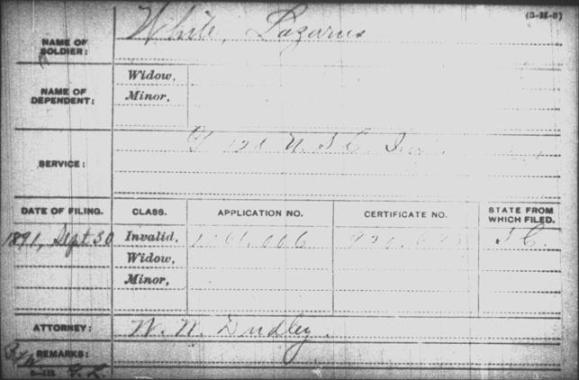 (3-H-8)
NAME OF SOLDIER: White, Lazarus
NAME OF DEPENDENT: Widow,
Minor,
SERVICE: U S C Inf.
DATE OF FILING. CLASS. APPLICATION NO. CERTIFICATE NO. STATE FROM WHICH FILED.
1891, Sept. 30 Invalid, S C.
Widow,
Minor,
ATTORNEY: W. W. Dudley.
REMARKS: